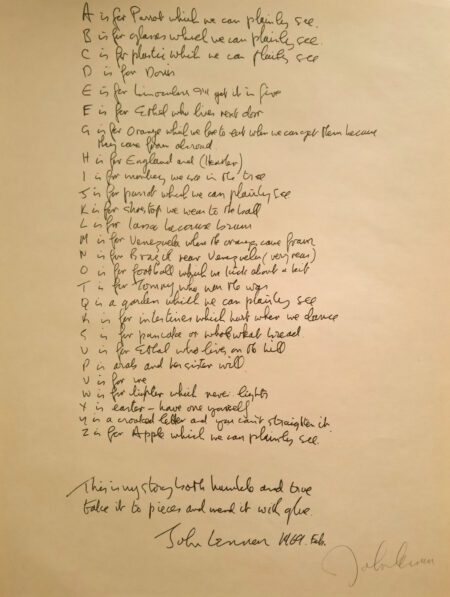 A is for Parrot which we can plainly see.
B is for glasses which we can plainly see
C is for plastic which we can plainly see
D is for Doris
E is for binoculars I'll get it in five
F is for Ethel who lives next door
G is for Orange which we love to eat when we can get them because
they come from abroad
H is for England and (Heather)
I is for monkey we see in the tree
J is for parrot which we can plainly see
K is for shoetop we wear to the ball
L is for because brown
M is for Venezuela where the oranges come from
N is for Brazil near Venezuela (very near)
O is for football which we kick about a bit
T is for Tommy who won the war
Q is a garden which we can plainly see
R is for intestines which hurt when we dance
S is for pancake or whole wheat bread
U is for Ethel who lives on the hill
P is arab and her sister will
V is for me
W is for lighter which never lights
X is easter - have one yourself
Y is a crooked letter and you can't straighten it
Z is for Apple which we can plainly see.
This is my story both humble and true
take it to pieces and mend it with glue.
John Lennon 1969. Feb.
John Lennon